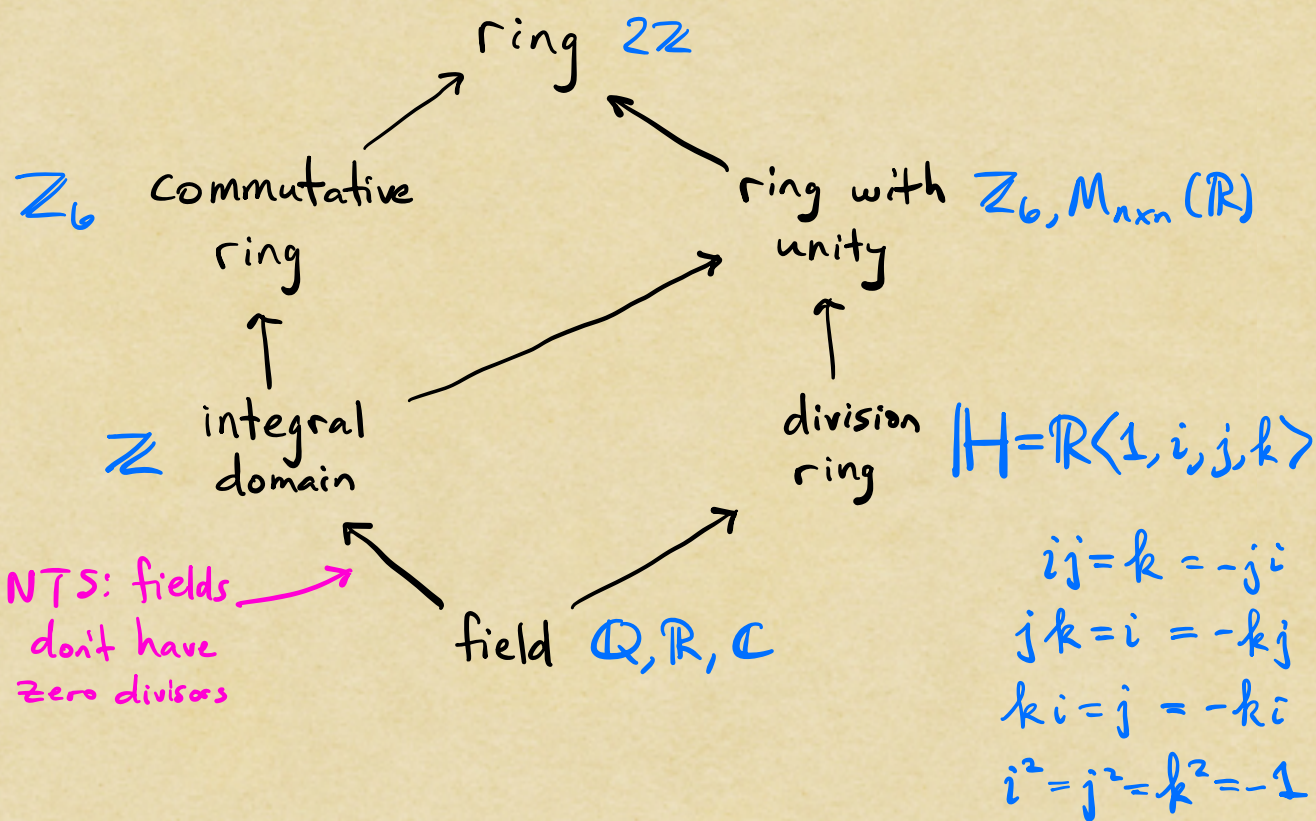 ring 2ℤ
ℤ₆ commutative
ring
ring with ℤ₆, Mₙₓₙ(ℝ)
unity
integral
ℤ
domain
division
ring
ℍ=ℝ⟨1, i, j, k⟩
NTS: fields
don't have
zero divisors
field ℚ, ℝ, ℂ
ij = k = -ji
jk = i = -kj
ki = j = -ki
i² = j² = k² = -1